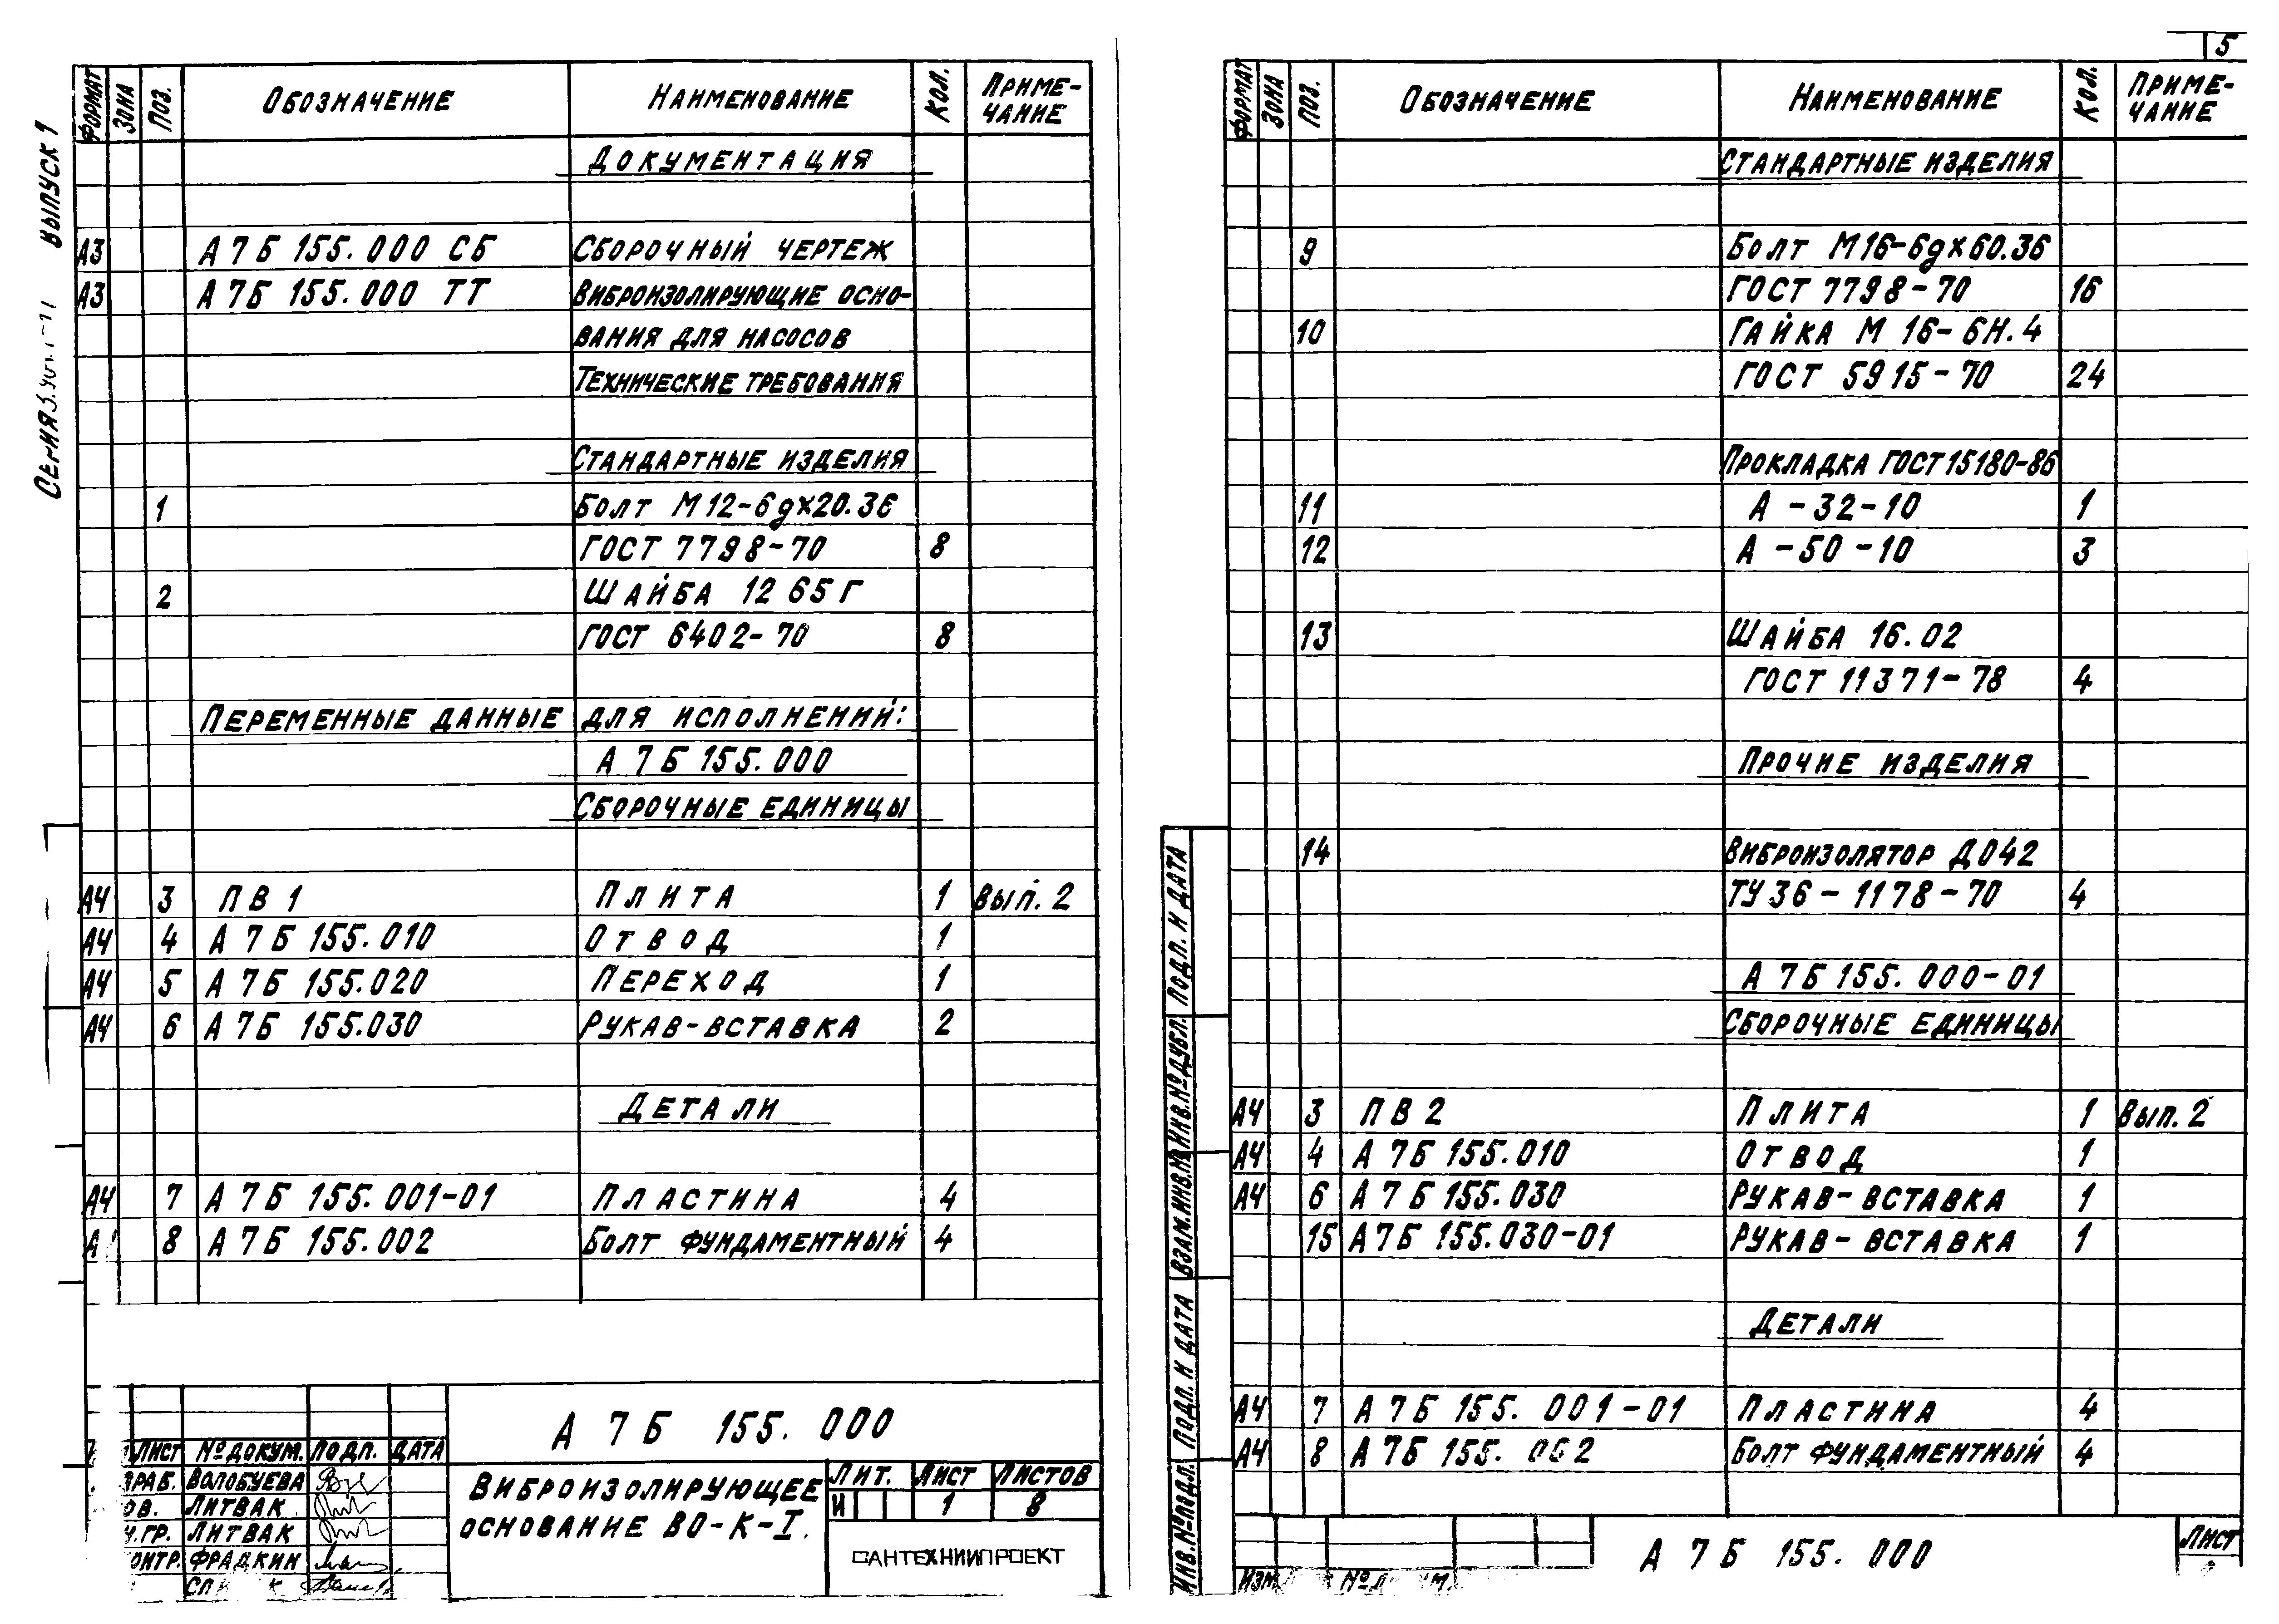 5
Выпуск 1
Серия
Формат Зона Поз. Обозначение Наименование Кол. Приме-
чание
Документация
А3 А7Б 155.000 СБ Сборочный чертеж
А3 А7Б 155.000 ТТ Виброизолирующие осно-
вания для насосов
Технические требования
Стандартные изделия
1 Болт М12-6gх20.36
ГОСТ 7798-70 8
2 Шайба 12 65Г
ГОСТ 6402-70 8
Переменные данные для исполнений:
А7Б 155.000
Сборочные единицы
А4 3 ПВ1 Плита 1 Вып. 2
А4 4 А7Б 155.010 Отвод 1
А4 5 А7Б 155.020 Переход 1
А4 6 А7Б 155.030 Рукав-вставка 2
Детали
А4 7 А7Б 155.001-01 Пластина 4
8 А7Б 155.002 Болт фундаментный 4
А7Б 155.000
Лист № докум. Подп. Дата
Волобуева
Литвак
Литвак
Фрадкин
Виброизолирующее
основание ВО-К-I.
Лит. Лист Листов
И 1 8
САНТЕХНИИПРОЕКТ
Формат Зона Поз. Обозначение Наименование Кол. Приме-
чание
Стандартные изделия
9 Болт М16-6gх60.36
ГОСТ 7798-70 16
10 Гайка М16-6Н.4
ГОСТ 5915-70 24
Прокладка ГОСТ 15180-86
11 А-32-10 1
12 А-50-10 3
13 Шайба 16.02
ГОСТ 11371-78 4
Прочие изделия
14 Виброизолятор Д042
ТУ36-1178-70 4
А7Б 155.000-01
Сборочные единицы
А4 3 ПВ2 Плита 1 Вып. 2
А4 4 А7Б 155.010 Отвод 1
А4 6 А7Б 155.030 Рукав-вставка 1
15 А7Б 155.030-01 Рукав-вставка 1
Детали
А4 7 А7Б 155.001-01 Пластина 4
А4 8 А7Б 155. Болт фундаментный 4
Инв.№подл. Подп. и дата Взам.инв.№ Инв.№дубл. Подп. и дата
Изм.
А7Б 155.000
Лист